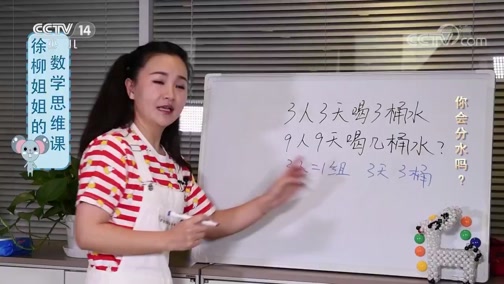 CCTV 14
CCTV.com
徐柳姐姐的
数学思维课
3人3天喝3桶水
9人9天喝几桶水？
=1组 3天 3桶
你会分水吗？